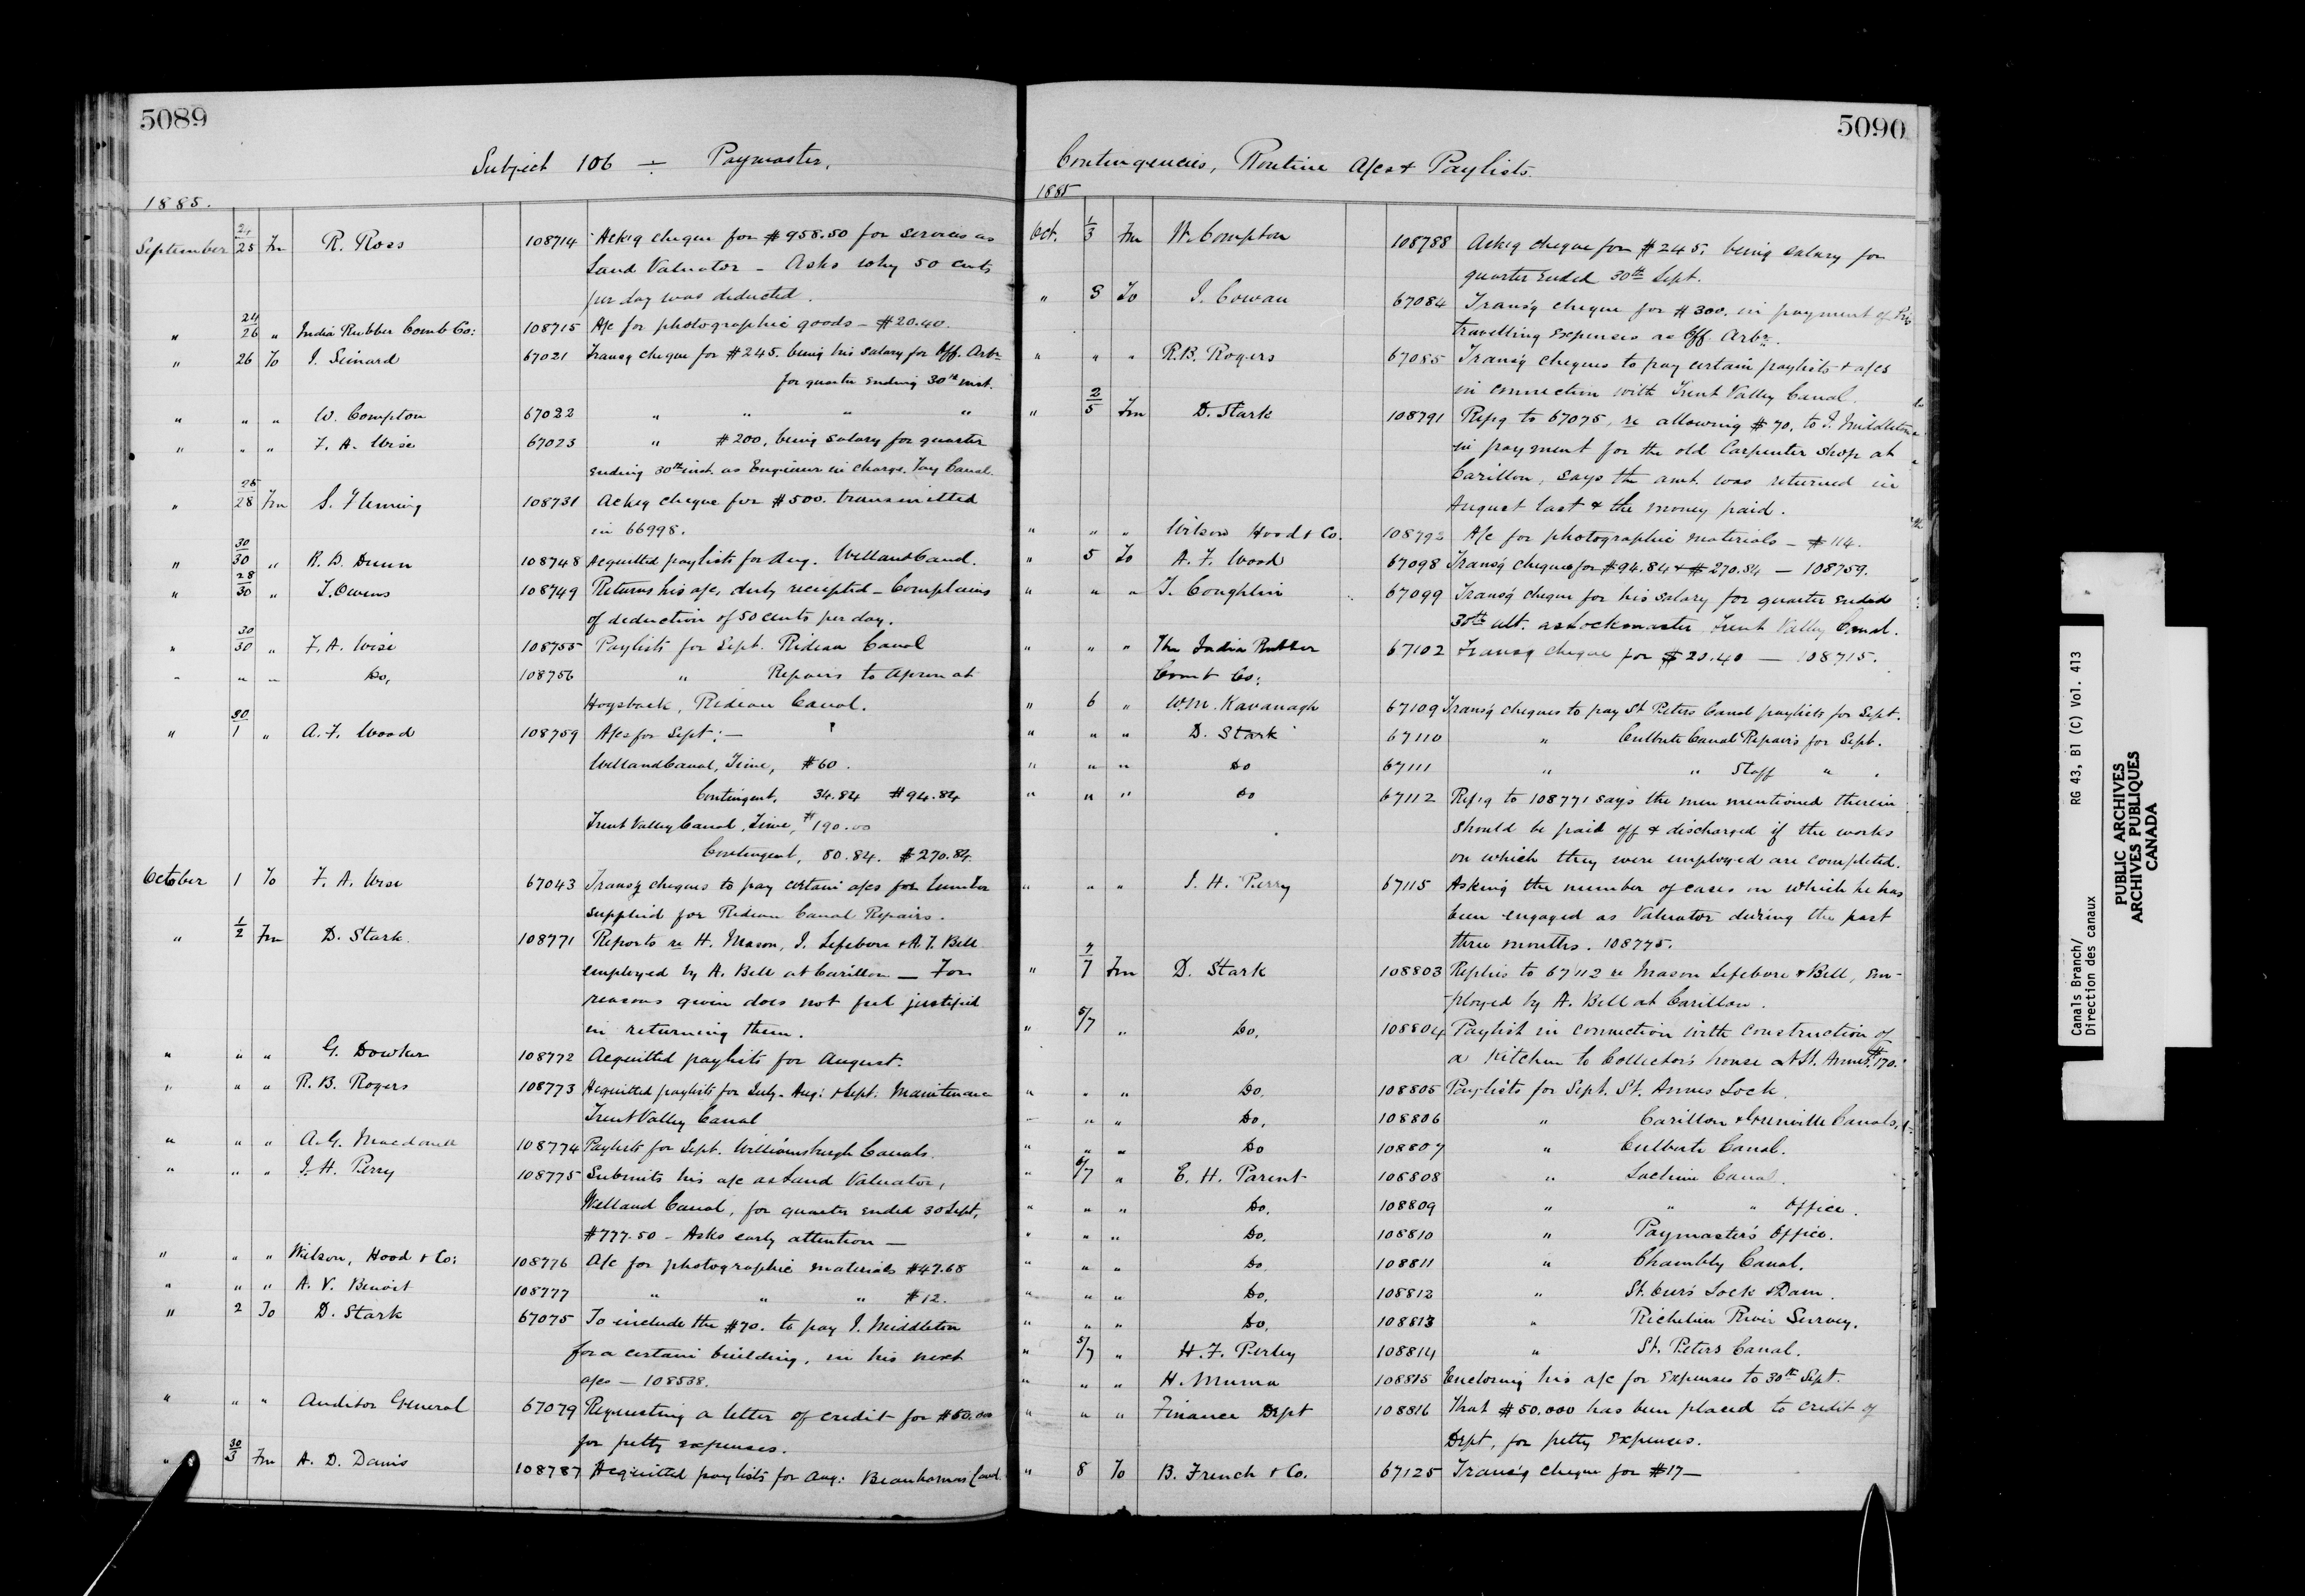 5089
Subject 106 ÷ Paymaster.
1885.
September 24/25 Fm R. Ross 108714 Ackg cheque for $958.50 for services as
Land Valuator - Asks why 50 cents
per day was deducted.
" 24/26 " India Rubber Comb Co: 108715 A/c for photographic goods - $20.40.
" 26 To J. Simard 67021 Transg cheque for $245. being his salary for Off. Arbr
for quarter ending 30th inst.
" " " W. Compton 67022 " " " "
" " " F. A. Wise 67023 " $200, being salary for quarter
ending 30th inst. as Engineer in charge. Tay Canal.
" 25/28 Fm S. Fleming 108731 Ackg cheque for $500. transmitted
in 66998.
" 30/30 " R. D. Dunn 108748 Acquitted paylists for Aug. Welland Canal.
" 28/30 " T. Owens 108749 Returns his a/cs, duly receipted - Complains
of deduction of 50 cents per day.
" 30/30 " F. A. Wise 108755 Paylists for Sept. Rideau Canal
" " " Do, 108756 " Repairs to Apron at
Hogsback, Rideau Canal.
" 30/1 " A. F. Wood 108759 A/cs for Sept: —
Welland Canal, Time, $60.
Contingent, 34.84 $94.84
Trent Valley Canal, Time, $190.00
Contingent, 80.84. $270.84.
October 1 To F. A. Wise 67043 Transg cheques to pay certain a/cs for lumber
supplied for Rideau Canal Repairs.
" 1/2 Fm D. Stark. 108771 Reports re H. Mason, J. Lefebvre & A. J. Bell
employed by A. Bell at Carillon — For
reasons given does not feel justified
in returning them.
" " " G. Dowker 108772 Acquitted paylists for August.
" " " R. B. Rogers 108773 Acquitted paylists for July- Aug: & Sept: Maintenance
Trent Valley Canal
" " " A. G. Macdonell 108774 Paylists for Sept. Williamsburgh Canals.
" " " J. H. Perry 108775 Submits his a/c as Land Valuator,
Welland Canal, for quarter ended 30 Sept,
$777.50 - Asks early attention —
" " " Wilson, Hood & Co: 108776 A/c for photographic materials $47.68
" " " A. V. Benoit 108777 " " " $12.
" 2 To D. Stark 67075 To include the $70. to pay J. Middleton
for a certain building, in his next
a/cs — 108538.
" " " Auditor General 67079 Requesting a letter of credit for $50.000
for petty expenses.
" 30/3 Fm A. D. Danis 108787 Acquitted paylists for Aug: Beauharnois Canal
5090
Contingencies, Routine A/cs & Paylists.
1885
Oct. 1/3 Fm W. Compton 108788 Ackg cheque for $245. being salary for
quarter ended 30th Sept.
" 3 To J. Cowan 67084 Transg cheque for $300. in payment of his
travelling expenses as Off. Arbr.
" " " R. B. Rogers 67085 Transg cheques to pay certain paylists & a/cs
in connection with Trent Valley Canal.
" 2/5 Fm D. Stark 108791 Repg to 67075, re allowing $70. to J. Middleton
in payment for the old Carpenter Shop at
Carillon, says the amt. was returned in
August last & the money paid.
" " " Wilson Hood & Co. 108792 A/c for photographic materials - $114.
" 5 To A. F. Wood 67098 Transg cheques for $94.84 & $270.84 — 108759.
" " " T. Coughlin 67099 Transg cheque for his salary for quarter ended
30th ult. as Lockmaster Trent Valley Canal.
" " " The India Rubber 67102 Transg cheque for $20.40 — 108715.
Comb Co:
" 6 " W.M. Kavanagh 67109 Transg cheques to pay St. Peters Canal paylists for Sept.
" " " D. Stark 67110 " Culbute Canal Repairs for Sept.
" " " Do 67111 " " Staff " "
" " " Do 67112 Repg to 108771 says the men mentioned therein
should be paid off & discharged if the works
on which they were employed are completed.
" " " J. H. Perry 67115 Asking the number of cases on which he has
been engaged as Valuator during the past
three months. 108775.
" 7/7 Fm D. Stark 108803 Replies to 67112 re Mason Lefebvre & Bell, em-
ployed by A. Bell at Carillon.
" 5/7 " Do. 108804 Paylist in connection with construction of
a kitchen to Collector's house at St. Annes. $170.
" " " Do. 108805 Paylists for Sept. St. Annes Lock.
" " " Do. 108806 " Carillon & Grenville Canals.
" " " Do 108807 " Culbute Canal.
" 6/7 " E. H. Parent 108808 " Lachine Canal.
" " " Do. 108809 " " " Office.
" " " Do. 108810 " Paymaster's Office.
" " " Do 108811 " Chambly Canal.
" " " Do. 108812 " St. Ours Lock & Dam.
" " " Do. 108813 " Richelieu River Survey.
" 5/7 " H. F. Perley 108814 " St. Peters Canal.
" " " H. Muma 108815 Enclosing his a/c for expenses to 30th Sept.
" " " Finance Dept 108816 That $50.000 has been placed to credit of
Dept, for petty expenses.
" 8 To B. French & Co. 67125 Transg cheque for $17 —
Canals Branch/ RG 43, B1 (C) Vol. 413
Direction des canaux
PUBLIC ARCHIVES
ARCHIVES PUBLIQUES
CANADA